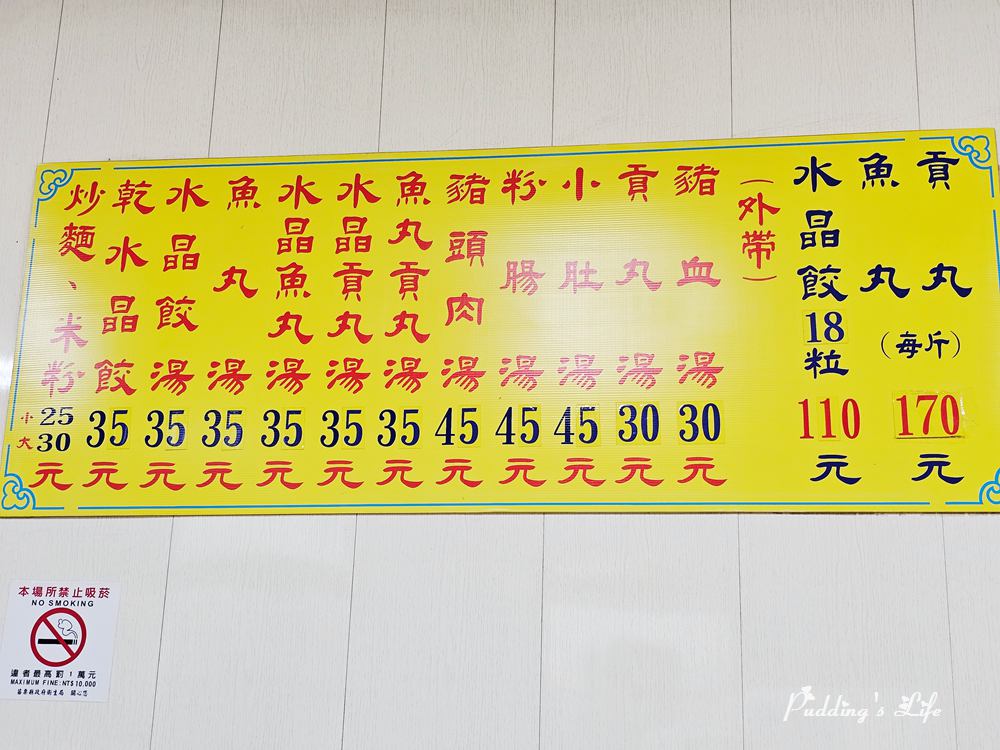 炒麵、米粉 小25 大30 元
乾水晶餃 35 元
水晶餃湯 35 元
魚丸湯 35 元
水晶魚丸湯 35 元
水晶貢丸湯 35 元
魚丸貢丸湯 35 元
豬頭肉湯 45 元
粉腸湯 45 元
小肚湯 45 元
貢丸湯 30 元
豬血湯 30 元
(外帶)
水晶餃18粒 110 元
魚丸
貢丸
(每斤) 170 元
本場所禁止吸菸
NO SMOKING
違者最高罰1萬元
MAXIMUM FINE:NT$10,000
苗栗縣政府衛生局 關心您
Pudding's Life